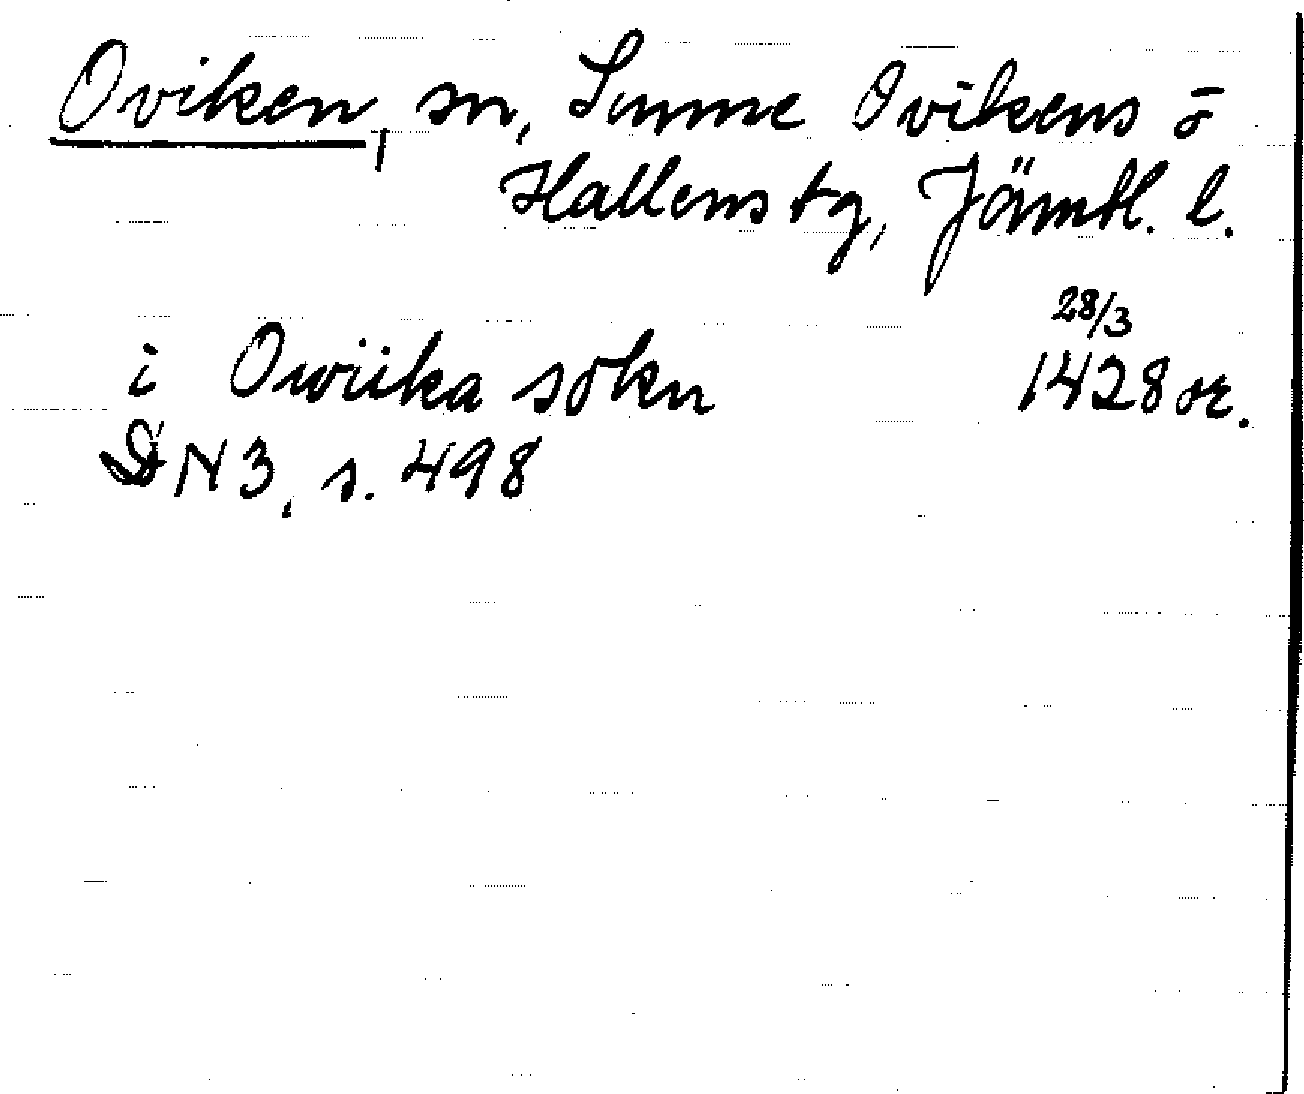 Oviken, sn, Sunne Ovikens o
Hallens tg, Jämtl. l.
28/3
i Owiika sokn 1428 or.
DN 3, s. 498